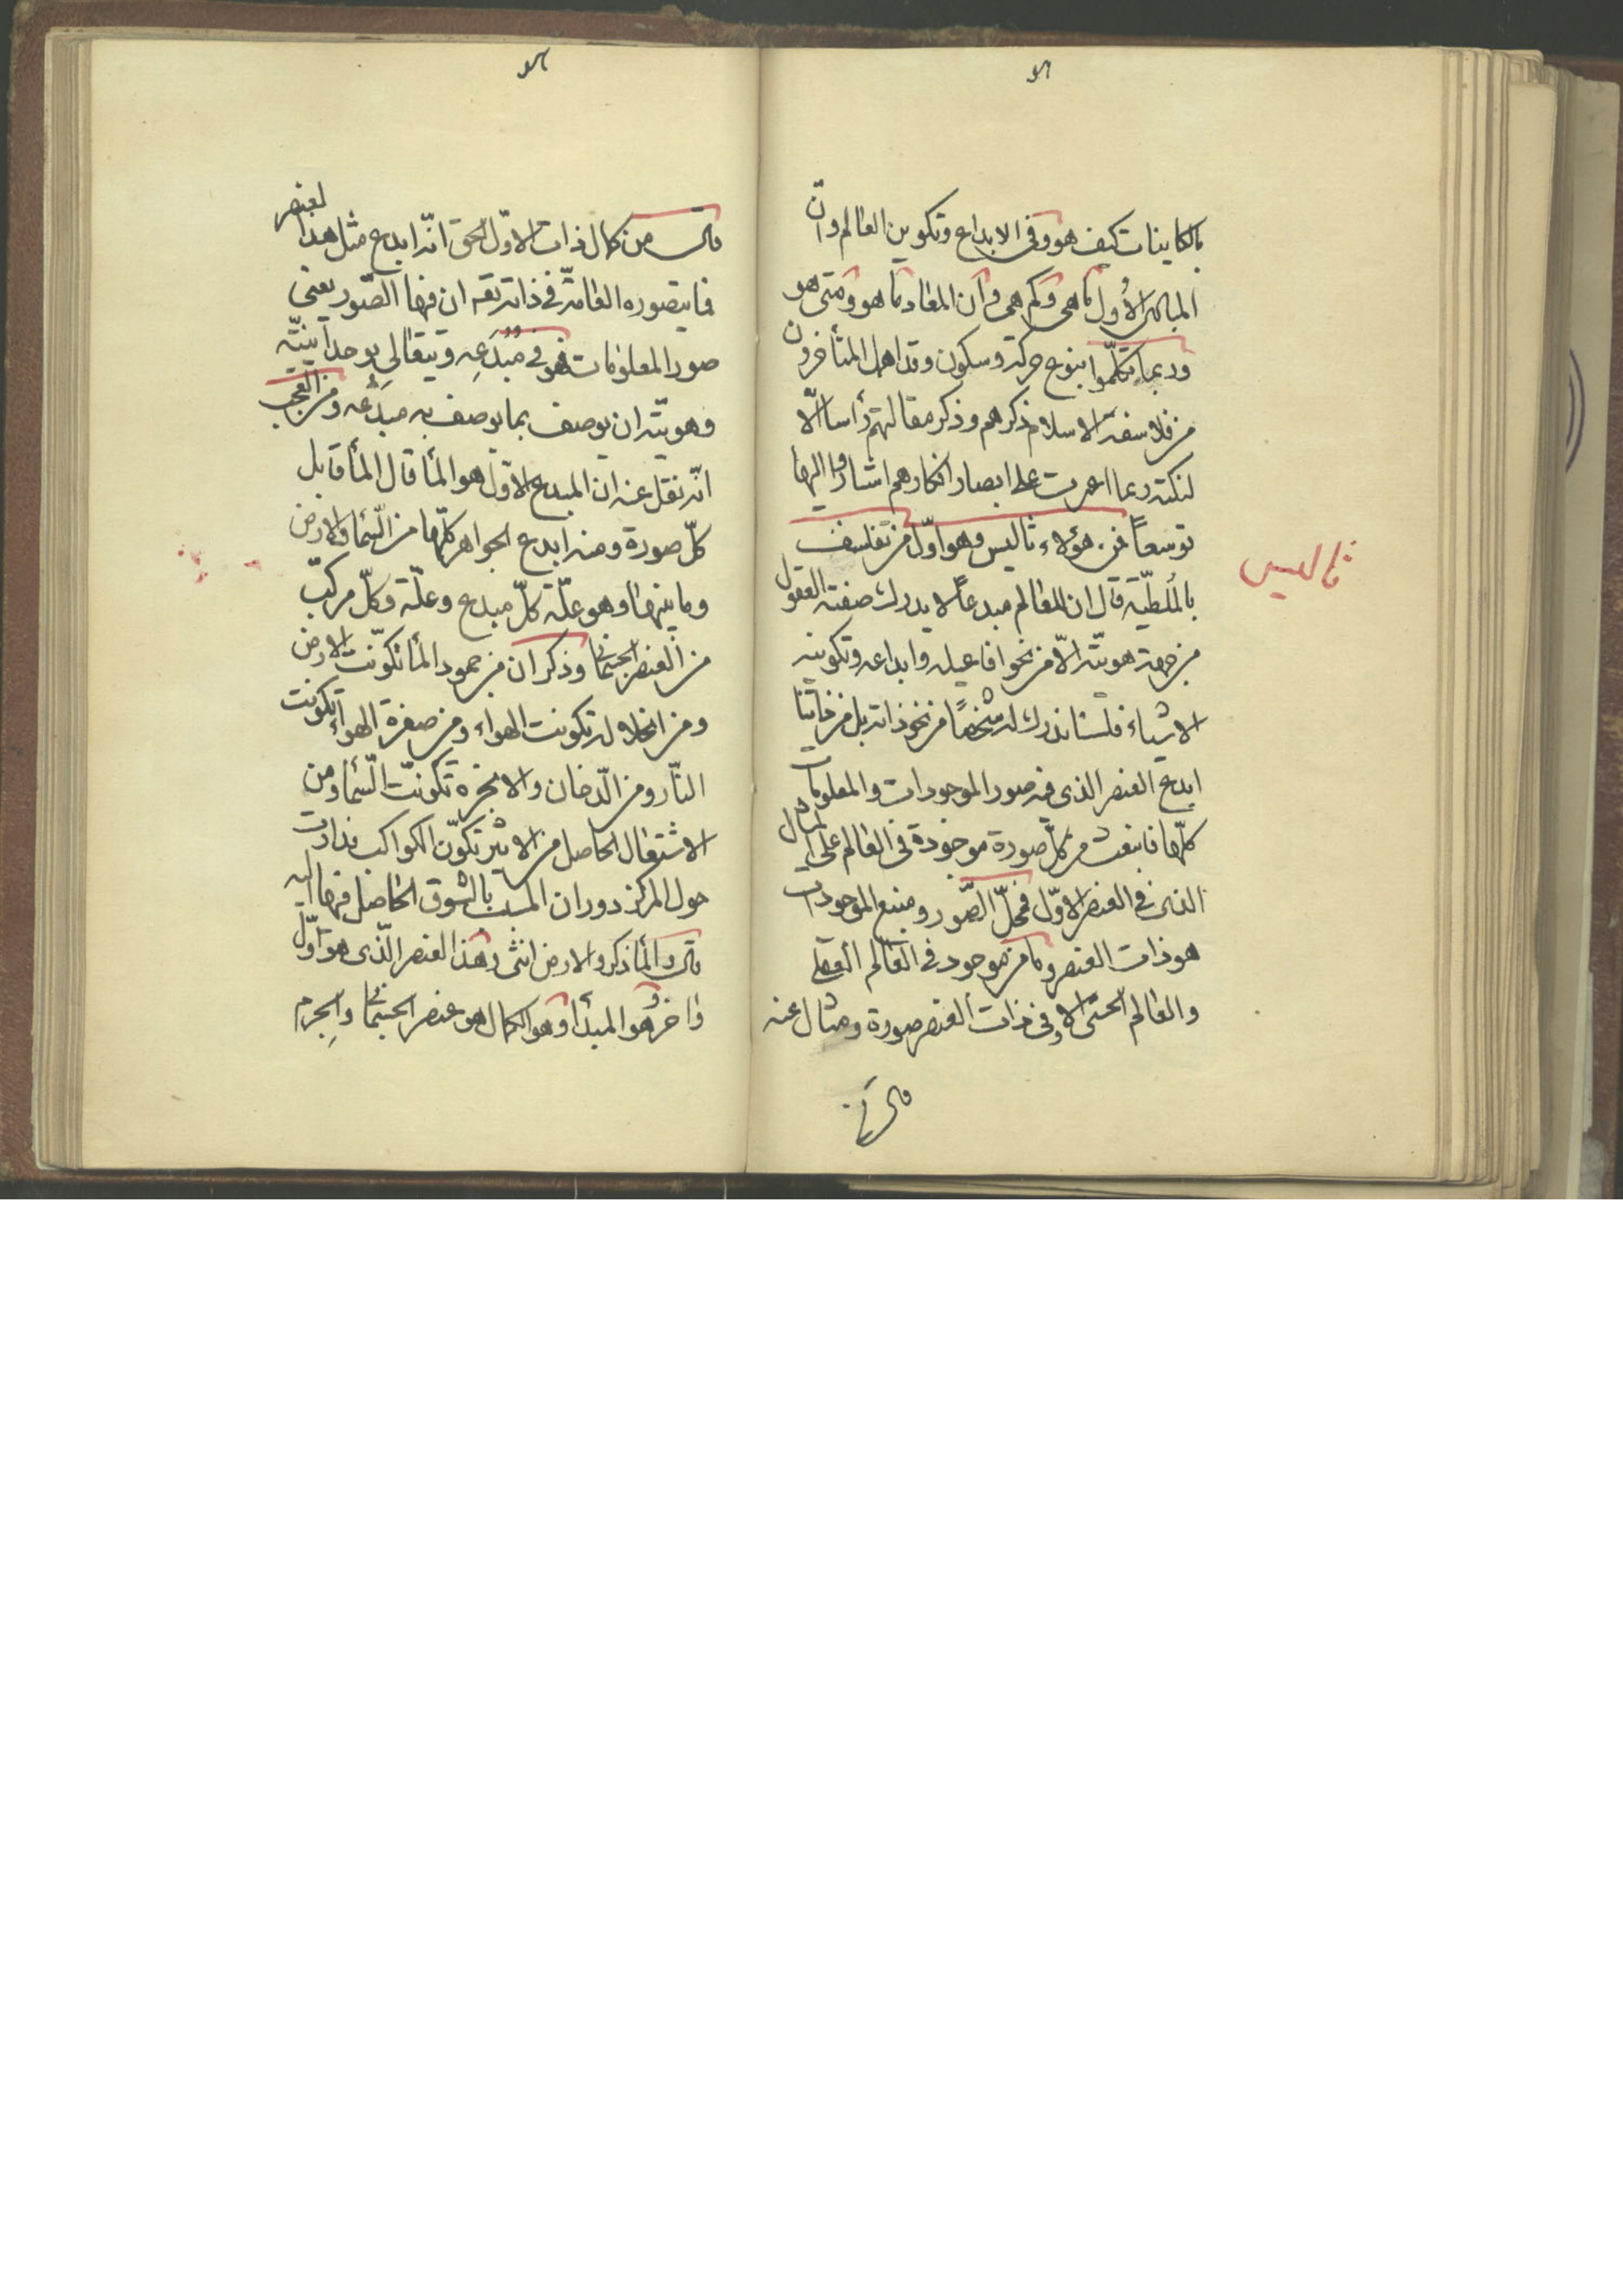 بالكاينات كيف هو وفى الابداع وتكوين العالم وان
المبادى الأول ما هى وكم هى وان المعاد ما هو ومتى هو
وربما تكلّموا بنوع حركة وسكون وقد اهمل المتأخرون
من فلاسفة الاسلام ذكرهم وذكر مقالتهم رأسا الّا
لنكتة ربما اعبرت على ابصار افكارهم اشاروا اليها
توسعاً فمن هؤلاء ثاليس وهو اوّل من تفلسف
ثاليس
بالملطيّه قال ان للعالم مبدعاً لا يدرك صفته العقول
من جهة هويته الّا من نحو افاعيله وابداعه وتكوينه
الاشياء فلسنا ندرك له شخصًا من نحو ذاته بل من ذاتنا
ابدع العنصر الذى فيه صور الموجودات والمعلومات
كلّها فانبعث من كلّ صورة موجودة فى العالم على المثال
الذى فى العنصر الاوّل فمحلّ الصّور ومنبع الموجودات
هو ذات العنصر وما من موجود فى العالم العقلى
والعالم الحسّى الا وفى ذات العنصر صورة ومثال عنه
قال ومن
قال من كمال ذات الاوّل الحق انّه ابدع مثل هذا العنصر
فما يتصوره العامّة فى ذاته تعه ان فيها الصّور يعنى
صور المعلومات فهو فى مُبدَعِه ويتعالى بوحدانيّته
وهويّته ان يوصف بما يوصف به مبدَعه ومن العجب
انّه نقل عنه ان المبدع الاوّل هو المأ قال المأ قابل
كلّ صورة ومنه ابدع الجواهر كلّها من السّما والارض
وما بينهما وهو علّة كلّ مبدع وعلّة وكلّ مركّب
من العنصر الجسمانى وذكر ان من جمود المأ تكوّنت الارض
ومن انحلاله تكونت الهواء ومن صفوة الهواء تكونت
النّار ومن الدّخان والابخره تكونت السّما ومن
الاشتعال الحاصل من الاثير تكوّن الكواكب فدارت
حول المركز دوران المسبب بالشوق الحاصل فيها اليه
قال والمأ ذكر والارض انثى وهذا العنصر الّذى هو اوّل
واخر هو المبدأ وهو الكمال هو عنصر الجسمانى والجِرم